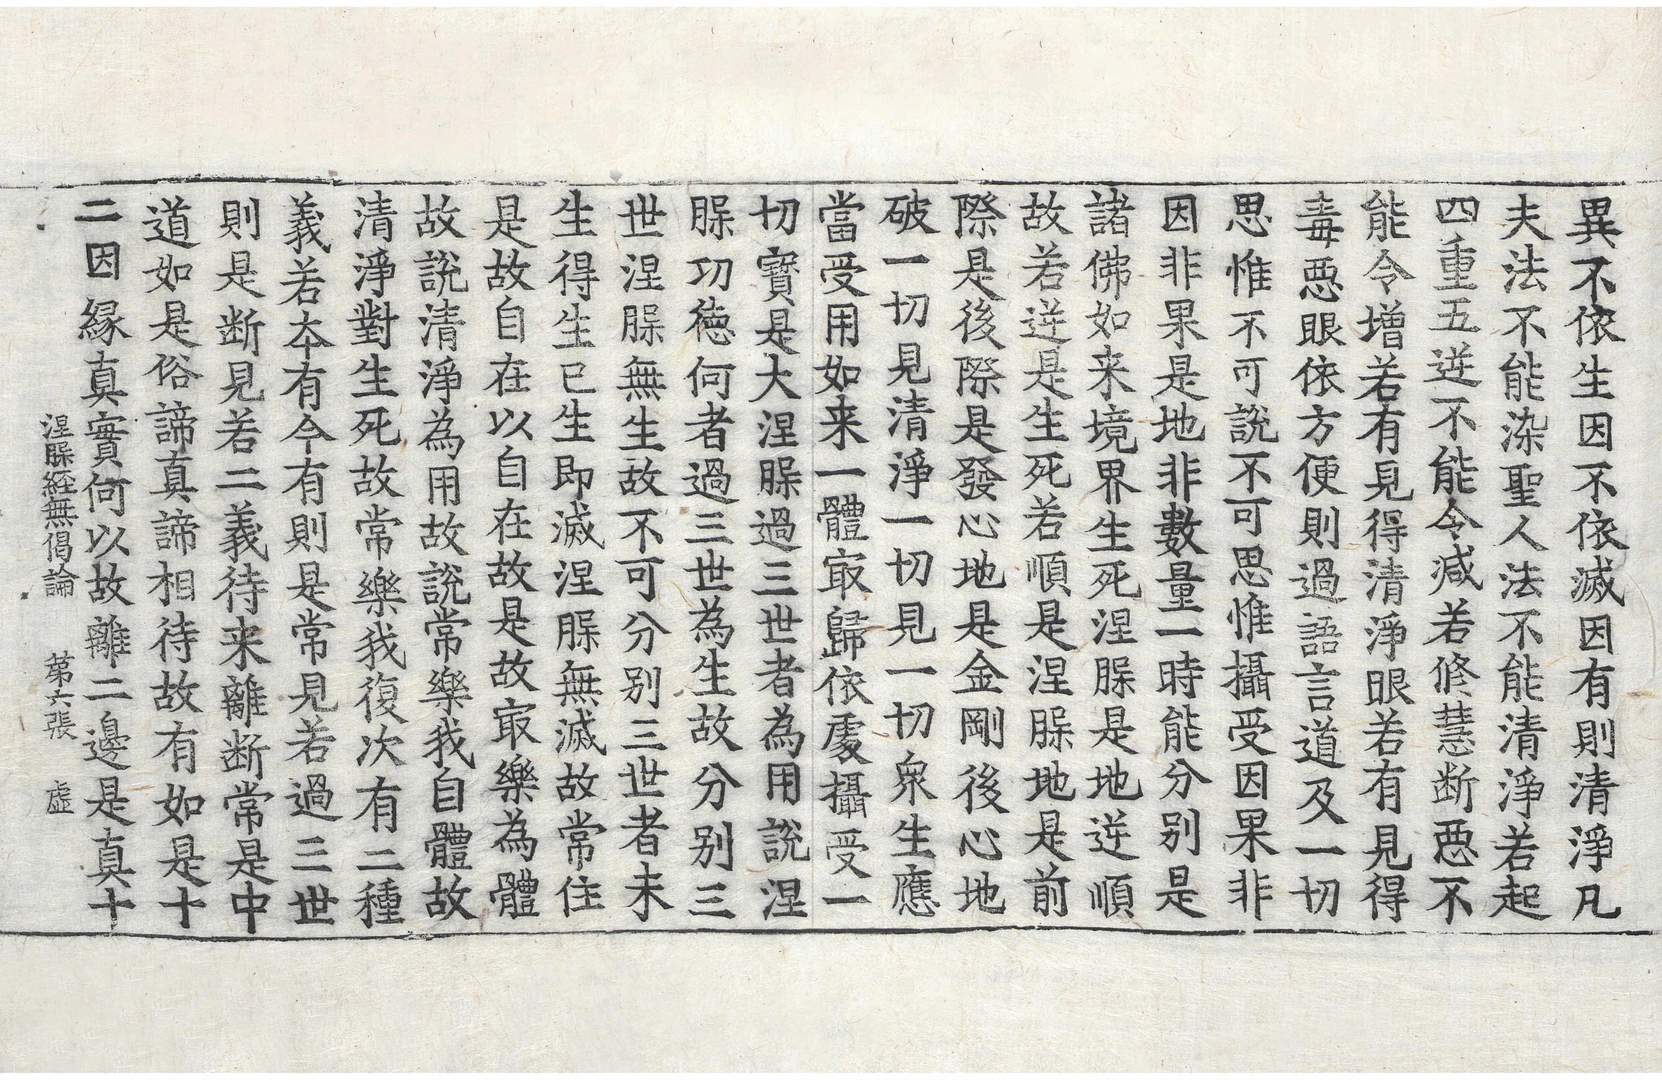 異不依生因不依滅因有則清淨凡
夫法不能染聖人法不能清淨若起
四重五逆不能令减若修慧断惡不
能令增若有見得清淨眼若有見得
毒惡眼依方便則過語言道及一切
思惟不可說不可思惟攝受因果非
因非果是地非數量一時能分别是
諸佛如来境界生死涅㮈是地逆順
故若逆是生死若順是涅㮈地是前
際是後際是發心地是金剛後心地
破一切見清淨一切見一切衆生應
當受用如来一體㝡歸依處攝受一
切寶是大涅㮈過三世者為用說涅
㮈功德何者過三世為生故分别三
世涅㮈無生故不可分别三世者未
生得生已生即滅涅㮈無滅故常住
是故自在以自在故是故㝡樂為體
故說清淨為用故說常樂我自體故
清淨對生死故常樂我復次有二種
義若夲有今有則是常見若過三世
則是断見若二義待来離断常是中
道如是俗諦真諦相待故有如是十
二因縁真實何以故離二邊是真十
涅㮈経無偈論　第六張　虛